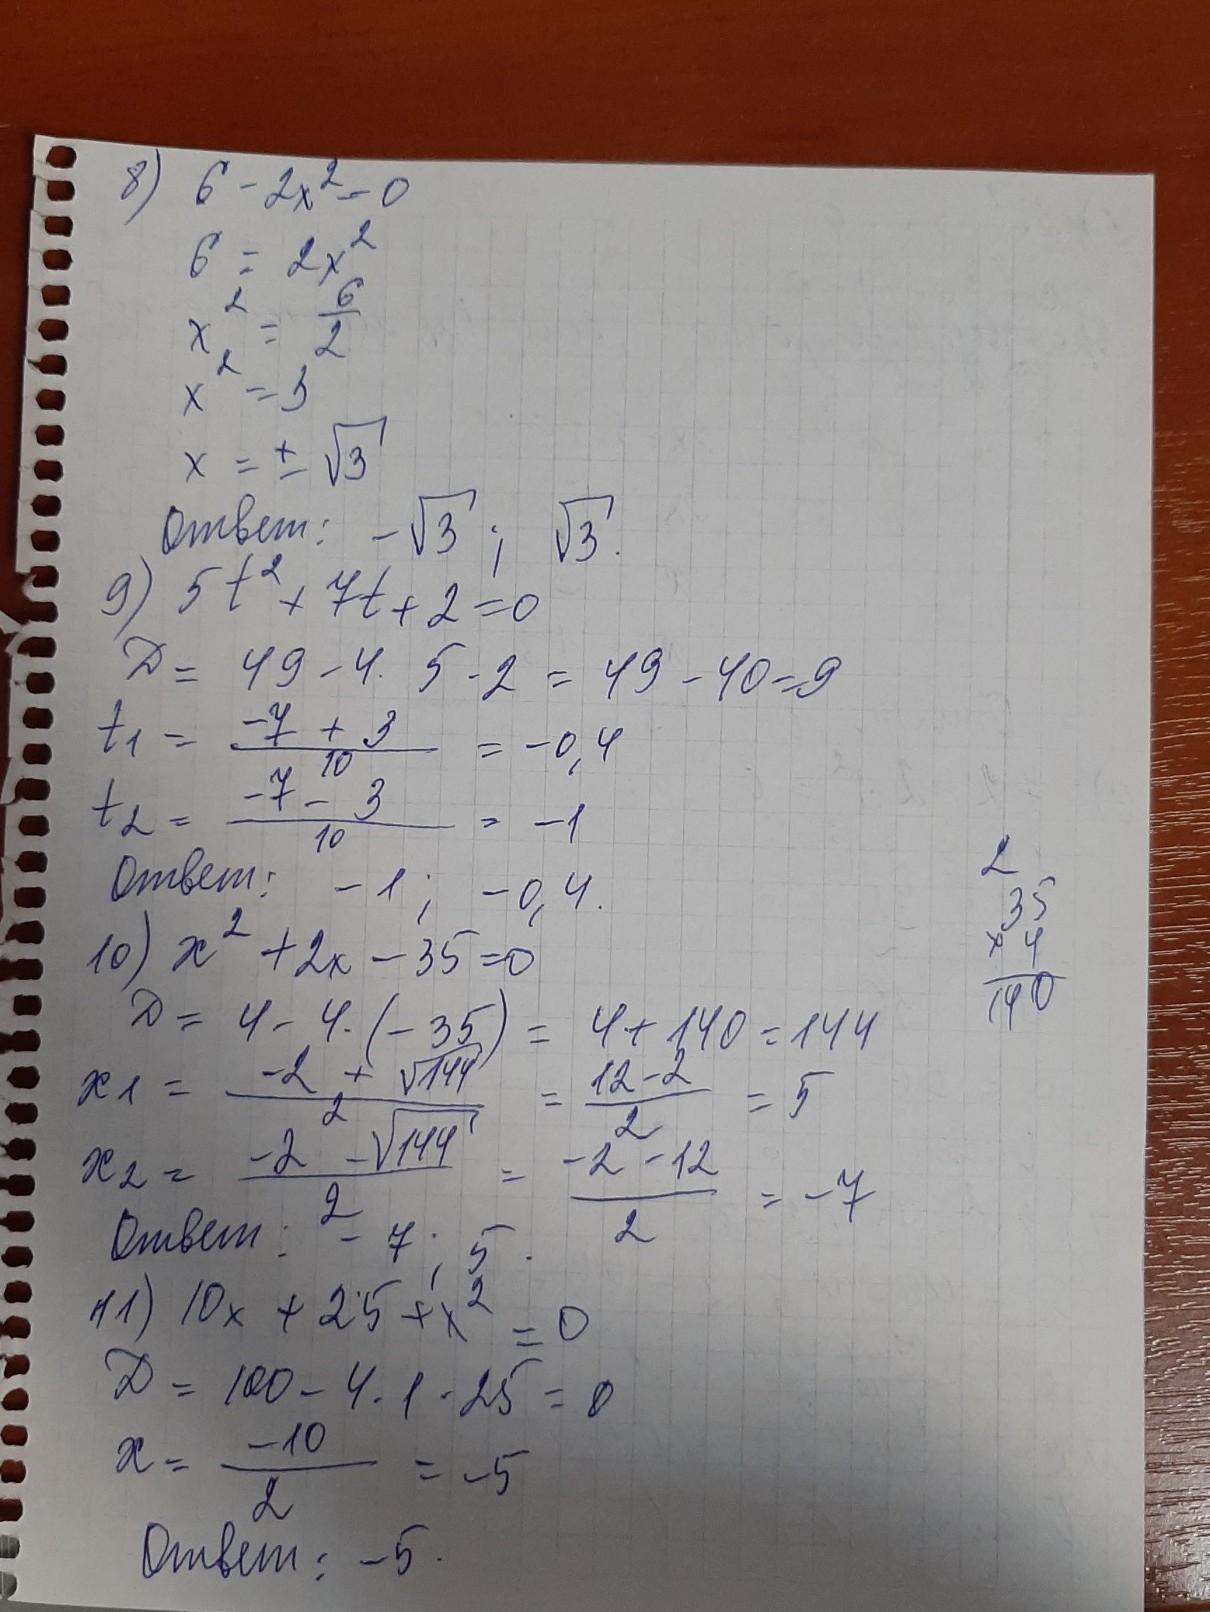 8) 6 - 2x² = 0
6 = 2x²
x² = 6/2
x² = 3
x = ± √3
Ответ: -√3 ; √3.
9) 5t² + 7t + 2 = 0
D = 49 - 4 · 5 · 2 = 49 - 40 = 9
t₁ = (-7 + 3)/10 = -0,4
t₂ = (-7 - 3)/10 = -1
Ответ: -1 ; -0,4.
10) x² + 2x - 35 = 0
D = 4 - 4 · (-35) = 4 + 140 = 144
x₁ = (-2 + √144)/2 = (12 - 2)/2 = 5
x₂ = (-2 - √144)/2 = (-2 - 12)/2 = -7
Ответ: -7 ; 5.
11) 10x + 25 + x² = 0
D = 100 - 4 · 1 · 25 = 0
x = -10/2 = -5
Ответ: -5.
2
35
× 4
140